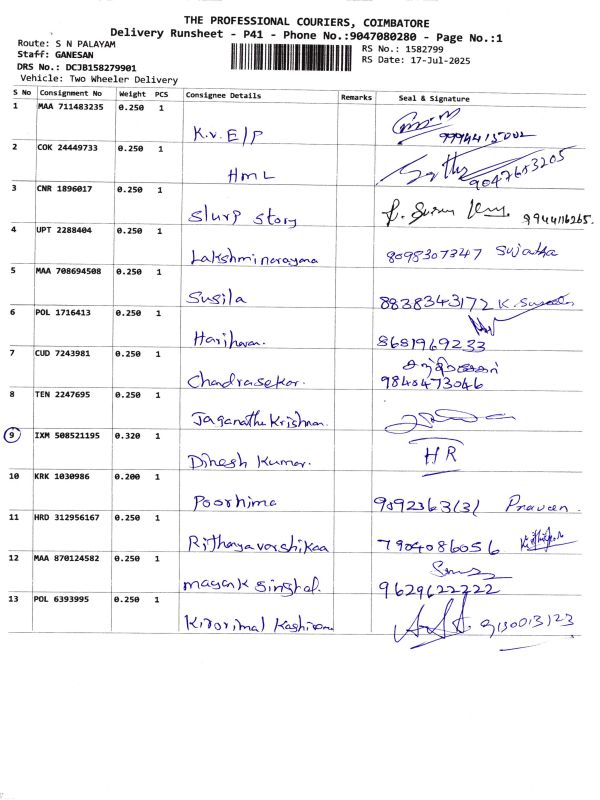 THE PROFESSIONAL COURIERS, COIMBATORE
Delivery Runsheet - P41 - Phone No.:9047080280 - Page No.:1
Route: S N PALAYAM
Staff: GANESAN
DRS No.: DCJB158279901
Vehicle: Two Wheeler Delivery
RS No.: 1582799
RS Date: 17-Jul-2025
S No Consignment No Weight PCS Consignee Details Remarks Seal & Signature
1 MAA 711483235 0.250 1
K.V. E/P 9994415002
2 COK 24449733 0.250 1
HML 9047653205
3 CNR 1896017 0.250 1
Slurp Story 9944116265.
4 UPT 2288404 0.250 1
Lakshminarayana 8098307347 Sujatha
5 MAA 708694508 0.250 1
Susila 8838343172 K.
6 POL 1716413 0.250 1
Hariharan. 8681969233
7 CUD 7243981 0.250 1
Chandrasekar. 9840473046
8 TEN 2247695 0.250 1
Jaganatha Krishnan.
9 IXM 508521195 0.320 1
Dinesh Kumar. HR
10 KRK 1030986 0.200 1
Poornima 9092363131 Praveen.
11 HRD 312956167 0.250 1
Rithayavarshikaa 7904086056
12 MAA 870124582 0.250 1
mayank Singhal. 9629622222
13 POL 6393995 0.250 1
Kirorimal Kashiram 9130013123